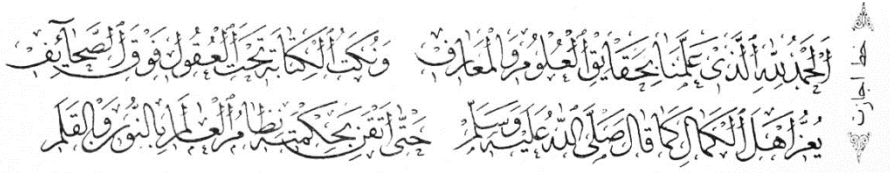 خط اجازت
الحمد لله الذى علمنا بحقايق العلوم والمعارف ونكت الكتابة تحت العقول فوق الصحايف
يعز اهل الكمال كما قال صلى الله عليه وسلم حتى اتقن بحكمته نظام العالم بالنور والقلم